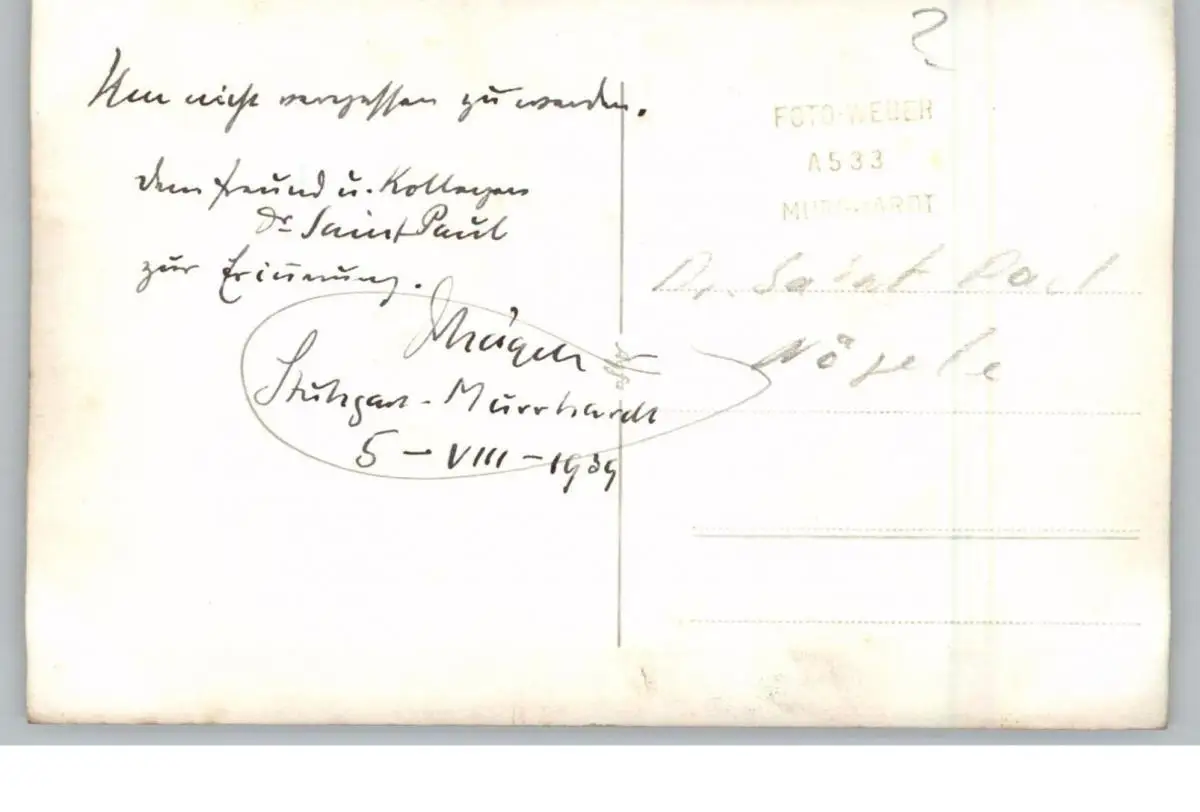 Um nicht vergessen zu werden.
dem Freund u. Kollegen
Dr Saint Paul
zur Erinnerung.
Nägele
Stuttgart - Murrhardt
5 - VIII - 1939
2
FOTO-WEBER
A533
MURRHARDT
Dr. Saint Paul
Nägele